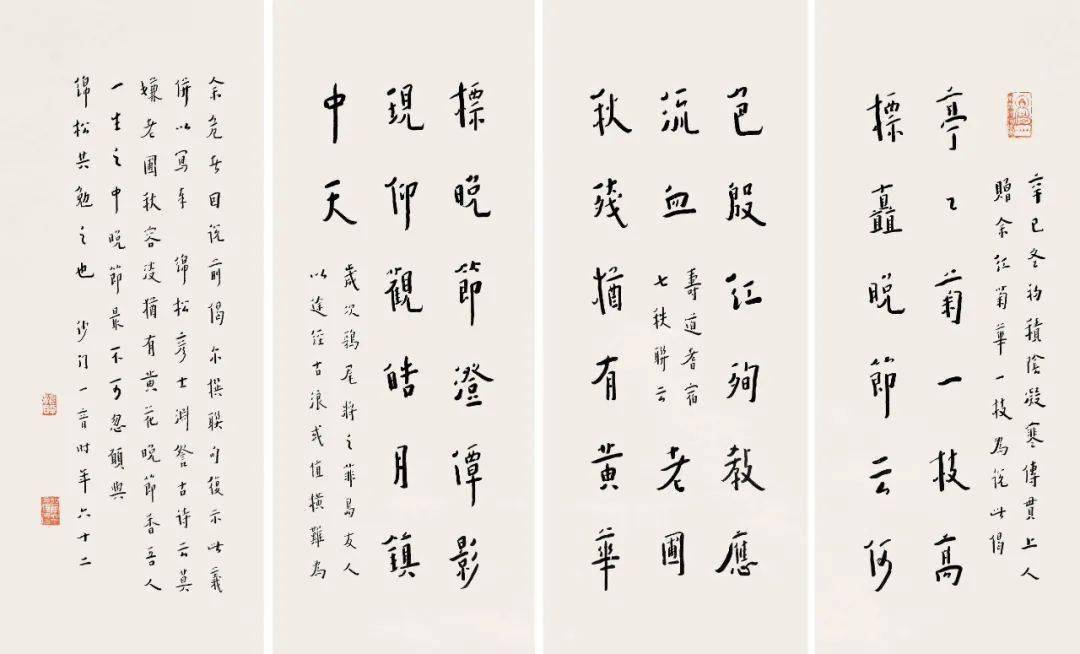 辛巳冬初積陰凝寒傳貫上人
贈余紅菊華一枝為說此偈
亭々菊一枝高
標矗晚節云何
色殷紅殉教應
流血
壽道耆宿
七秩聯云
老圃
秋殘猶有黃華
標晚節澄潭影
現仰觀皓月鎮
中天
歲次鶉尾將之菲島友人
以途經古浪或值橫難為
余危者因說前偈亦撰聯句復示此義
併以寫奉 綿松彥士淵詧古詩云莫
嫌老圃秋容淡猶有黃花晚節香吾人
一生之中晚節最不可忽願與
綿松共勉之也 沙門一音时年六十二